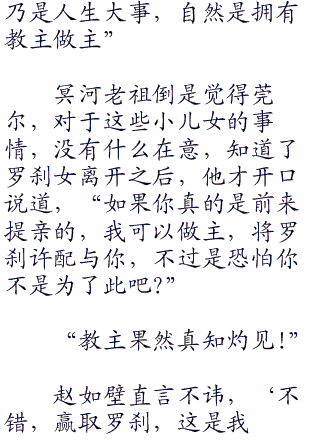 乃是人生大事，自然是拥有
教主做主”
冥河老祖倒是觉得莞
尔，对于这些小儿女的事
情，没有什么在意，知道了
罗刹女离开之后，他才开口
说道，“如果你真的是前来
提亲的，我可以做主，将罗
刹许配与你，不过是恐怕你
不是为了此吧？”
“教主果然真知灼见！”
赵如壁直言不讳，‘不
错，赢取罗刹，这是我